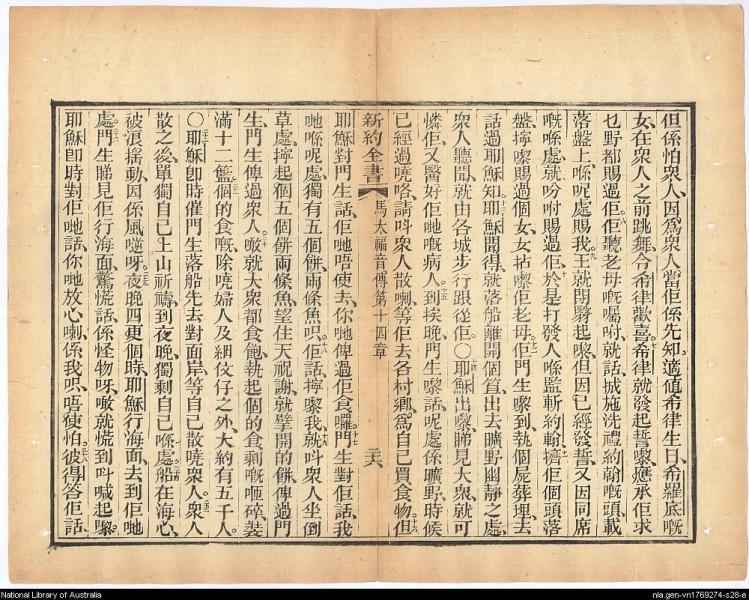 但係怕衆人、因爲衆人當佢係先知、適値希律生日、希羅底嘅
女、在衆人之前跳舞、令希律歡喜、希律就發起誓嚟、應承佢求
乜野都賜過佢、佢聽老母嘅囑咐、就話、城施洗禮約翰嘅頭、載
落盤上、喺呢處賜我、王就閉翳起嚟、但因已經發誓、又因同席
嘅喺處、就吩咐賜過佢、於是打發人喺監斬約翰、擠佢個頭落
盤、擰嚟賜過個女、女拈嚟佢老母、佢門生嚟到、執個屍葬埋、去
話過耶穌知、耶穌聞得、就落船離開個笪、出去曠野幽靜之處、
衆人聽聞、就由各城步行跟從佢、〇耶穌出嚟、睇見大衆、就可
憐佢、又醫好佢哋嘅病人、到挨晚、門生嚟話、呢處係曠野、時候
已經過曉咯、請呌衆人散喇、等佢去各村鄉、爲自己買食物、但
新約全書 馬太福音傳第十四章 二六
耶穌對門生話、佢哋唔使去、你哋俾過佢食囉、門生對佢話、我
哋喺呢處、獨有五個餅、兩條魚呮、佢話、擰嚟我、就呌衆人坐倒
草處、擰起個五個餅、兩條魚、望住天祝謝、就擘開的餅、俾過門
生、門生俾過衆人、噉就大衆都食飽、執起個的食剩嘅𠵇碎、裝
滿十二籃、個的食嘅、除曉婦人及細伢仔之外、大約有五千人、
〇耶穌卽時催門生落船、先去對面岸、等自己散曉衆人、衆人
散之後、單獨自己上山祈禱、到夜晚、獨剩自己喺處、船在海心、
被浪搖動、因係風逆呀、夜晚四更個時、耶穌行海面、去到佢哋
處、門生睇見佢行海面、驚慌話、係怪物呀、噉就慌到呌喊起嚟、
耶穌卽時對佢哋話、你哋放心喇、係我呮、唔使怕、彼得答佢話、
National Library of Australia
nla.gen-vn1769274-s28-e